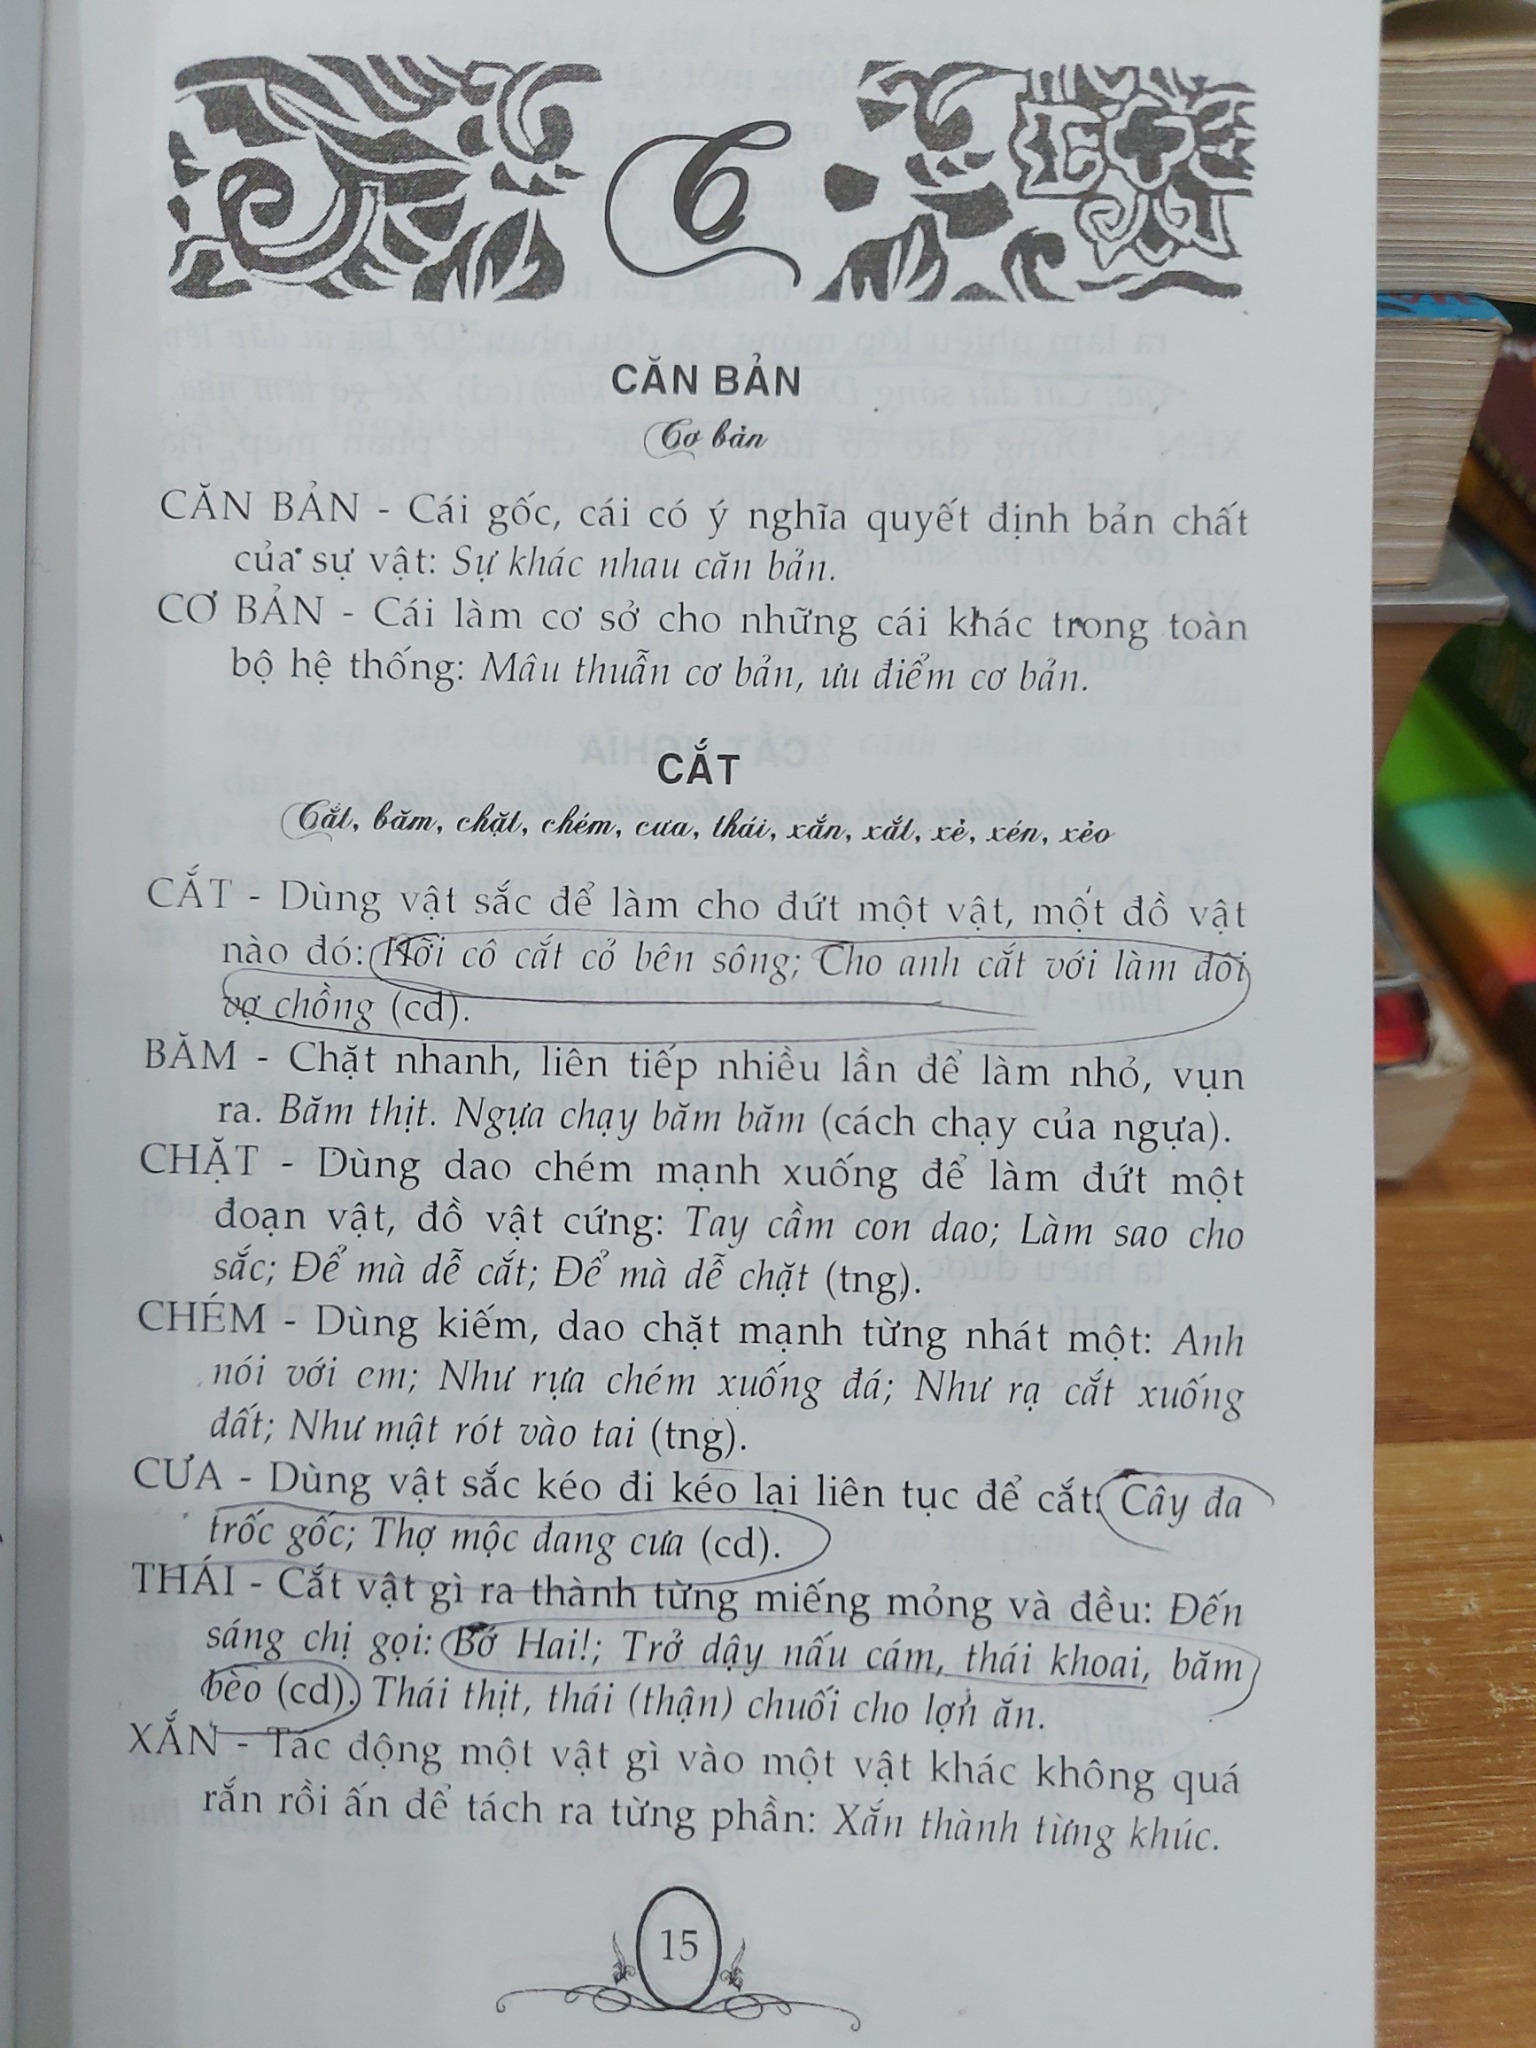 C
CĂN BẢN
Cơ bản
CĂN BẢN - Cái gốc, cái có ý nghĩa quyết định bản chất
của sự vật: Sự khác nhau căn bản.
CƠ BẢN - Cái làm cơ sở cho những cái khác trong toàn
bộ hệ thống: Mâu thuẫn cơ bản, ưu điểm cơ bản.
CẮT
Cắt, băm, chặt, chém, cưa, thái, xắn, xắt, xẻ, xén, xẻo
CẮT - Dùng vật sắc để làm cho đứt một vật, một đồ vật
nào đó: Hỡi cô cắt cỏ bên sông; Cho anh cắt với làm đôi
vợ chồng (cd).
BĂM - Chặt nhanh, liên tiếp nhiều lần để làm nhỏ, vụn
ra. Băm thịt. Ngựa chạy băm băm (cách chạy của ngựa).
CHẶT - Dùng dao chém mạnh xuống để làm đứt một
đoạn vật, đồ vật cứng: Tay cầm con dao; Làm sao cho
sắc; Để mà dễ cắt; Để mà dễ chặt (tng).
CHÉM - Dùng kiếm, dao chặt mạnh từng nhát một: Anh
nói với em; Như rựa chém xuống đá; Như rạ cắt xuống
đất; Như mật rót vào tai (tng).
CƯA - Dùng vật sắc kéo đi kéo lại liên tục để cắt: Cây đa
trốc gốc; Thợ mộc đang cưa (cd).
THÁI - Cắt vật gì ra thành từng miếng mỏng và đều: Đến
sáng chị gọi: Bớ Hai!; Trở dậy nấu cám, thái khoai, băm
bèo (cd). Thái thịt, thái (thận) chuối cho lợn ăn.
XẮN - Tác động một vật gì vào một vật khác không quá
rắn rồi ấn để tách ra từng phần: Xắn thành từng khúc.
15